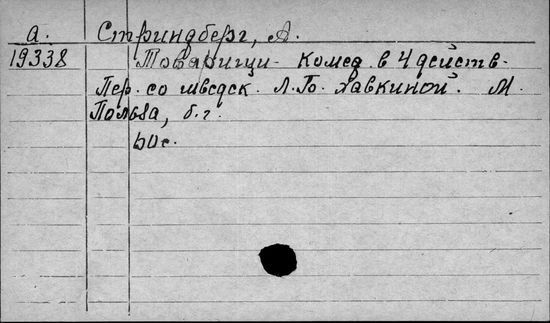 а. Стриндберг, А.
19338 Товарищи. Комед. в 4 действ.
Пер. со шведск. Л.Б. Хавкиной. М.
Польза, б.г.
60с.